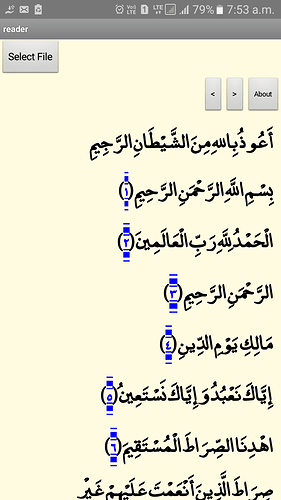 79% 7:53 a.m.
reader
Select File
< > About
أَعُوذُ بِاللهِ مِنَ الشَّيْطَانِ الرَّجِيمِ
بِسْمِ اللَّهِ الرَّحْمَنِ الرَّحِيمِ (١)
الْحَمْدُ لِلَّهِ رَبِّ الْعَالَمِينَ (٢)
الرَّحْمَنِ الرَّحِيمِ (٣)
مَالِكِ يَوْمِ الدِّينِ (٤)
إِيَّاكَ نَعْبُدُ وَ إِيَّاكَ نَسْتَعِينُ (٥)
اهْدِنَا الصِّرَاطَ الْمُسْتَقِيمَ (٦)
صِرَاطَ الَّذِينَ أَنْعَمْتَ عَلَيْهِمْ غَيْرِ